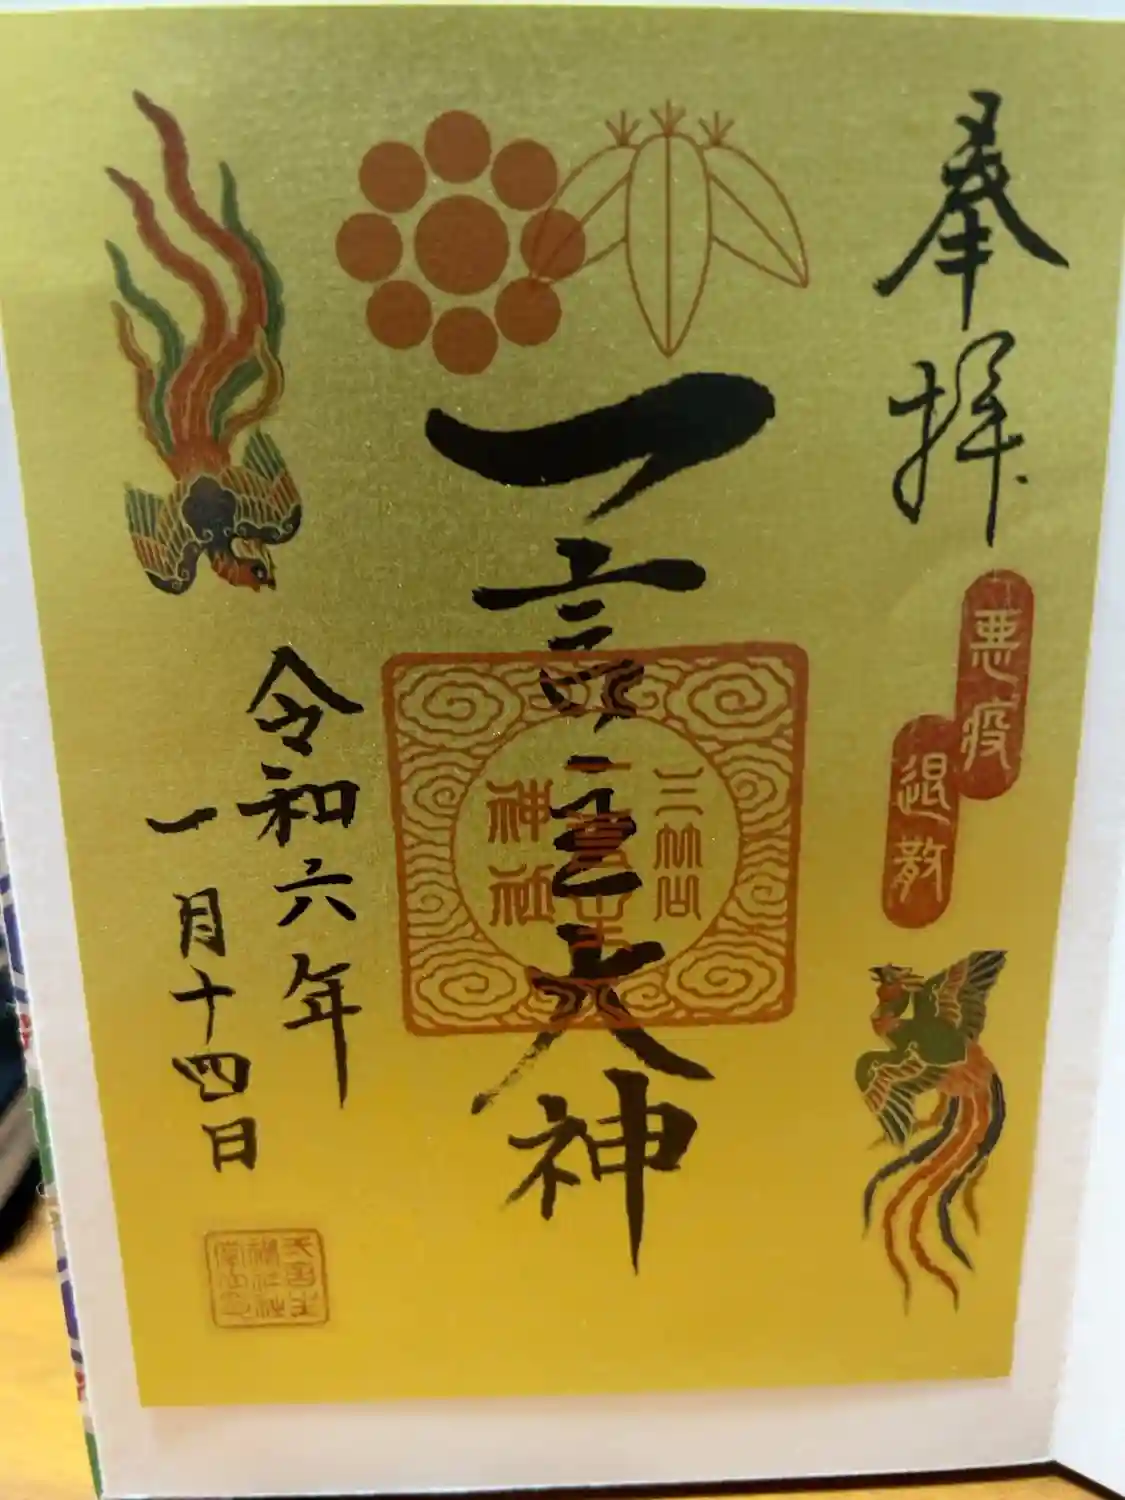 奉拝
悪疫
退散
一言主大神
三竹山
一言主
神社
令和六年
一月十四日